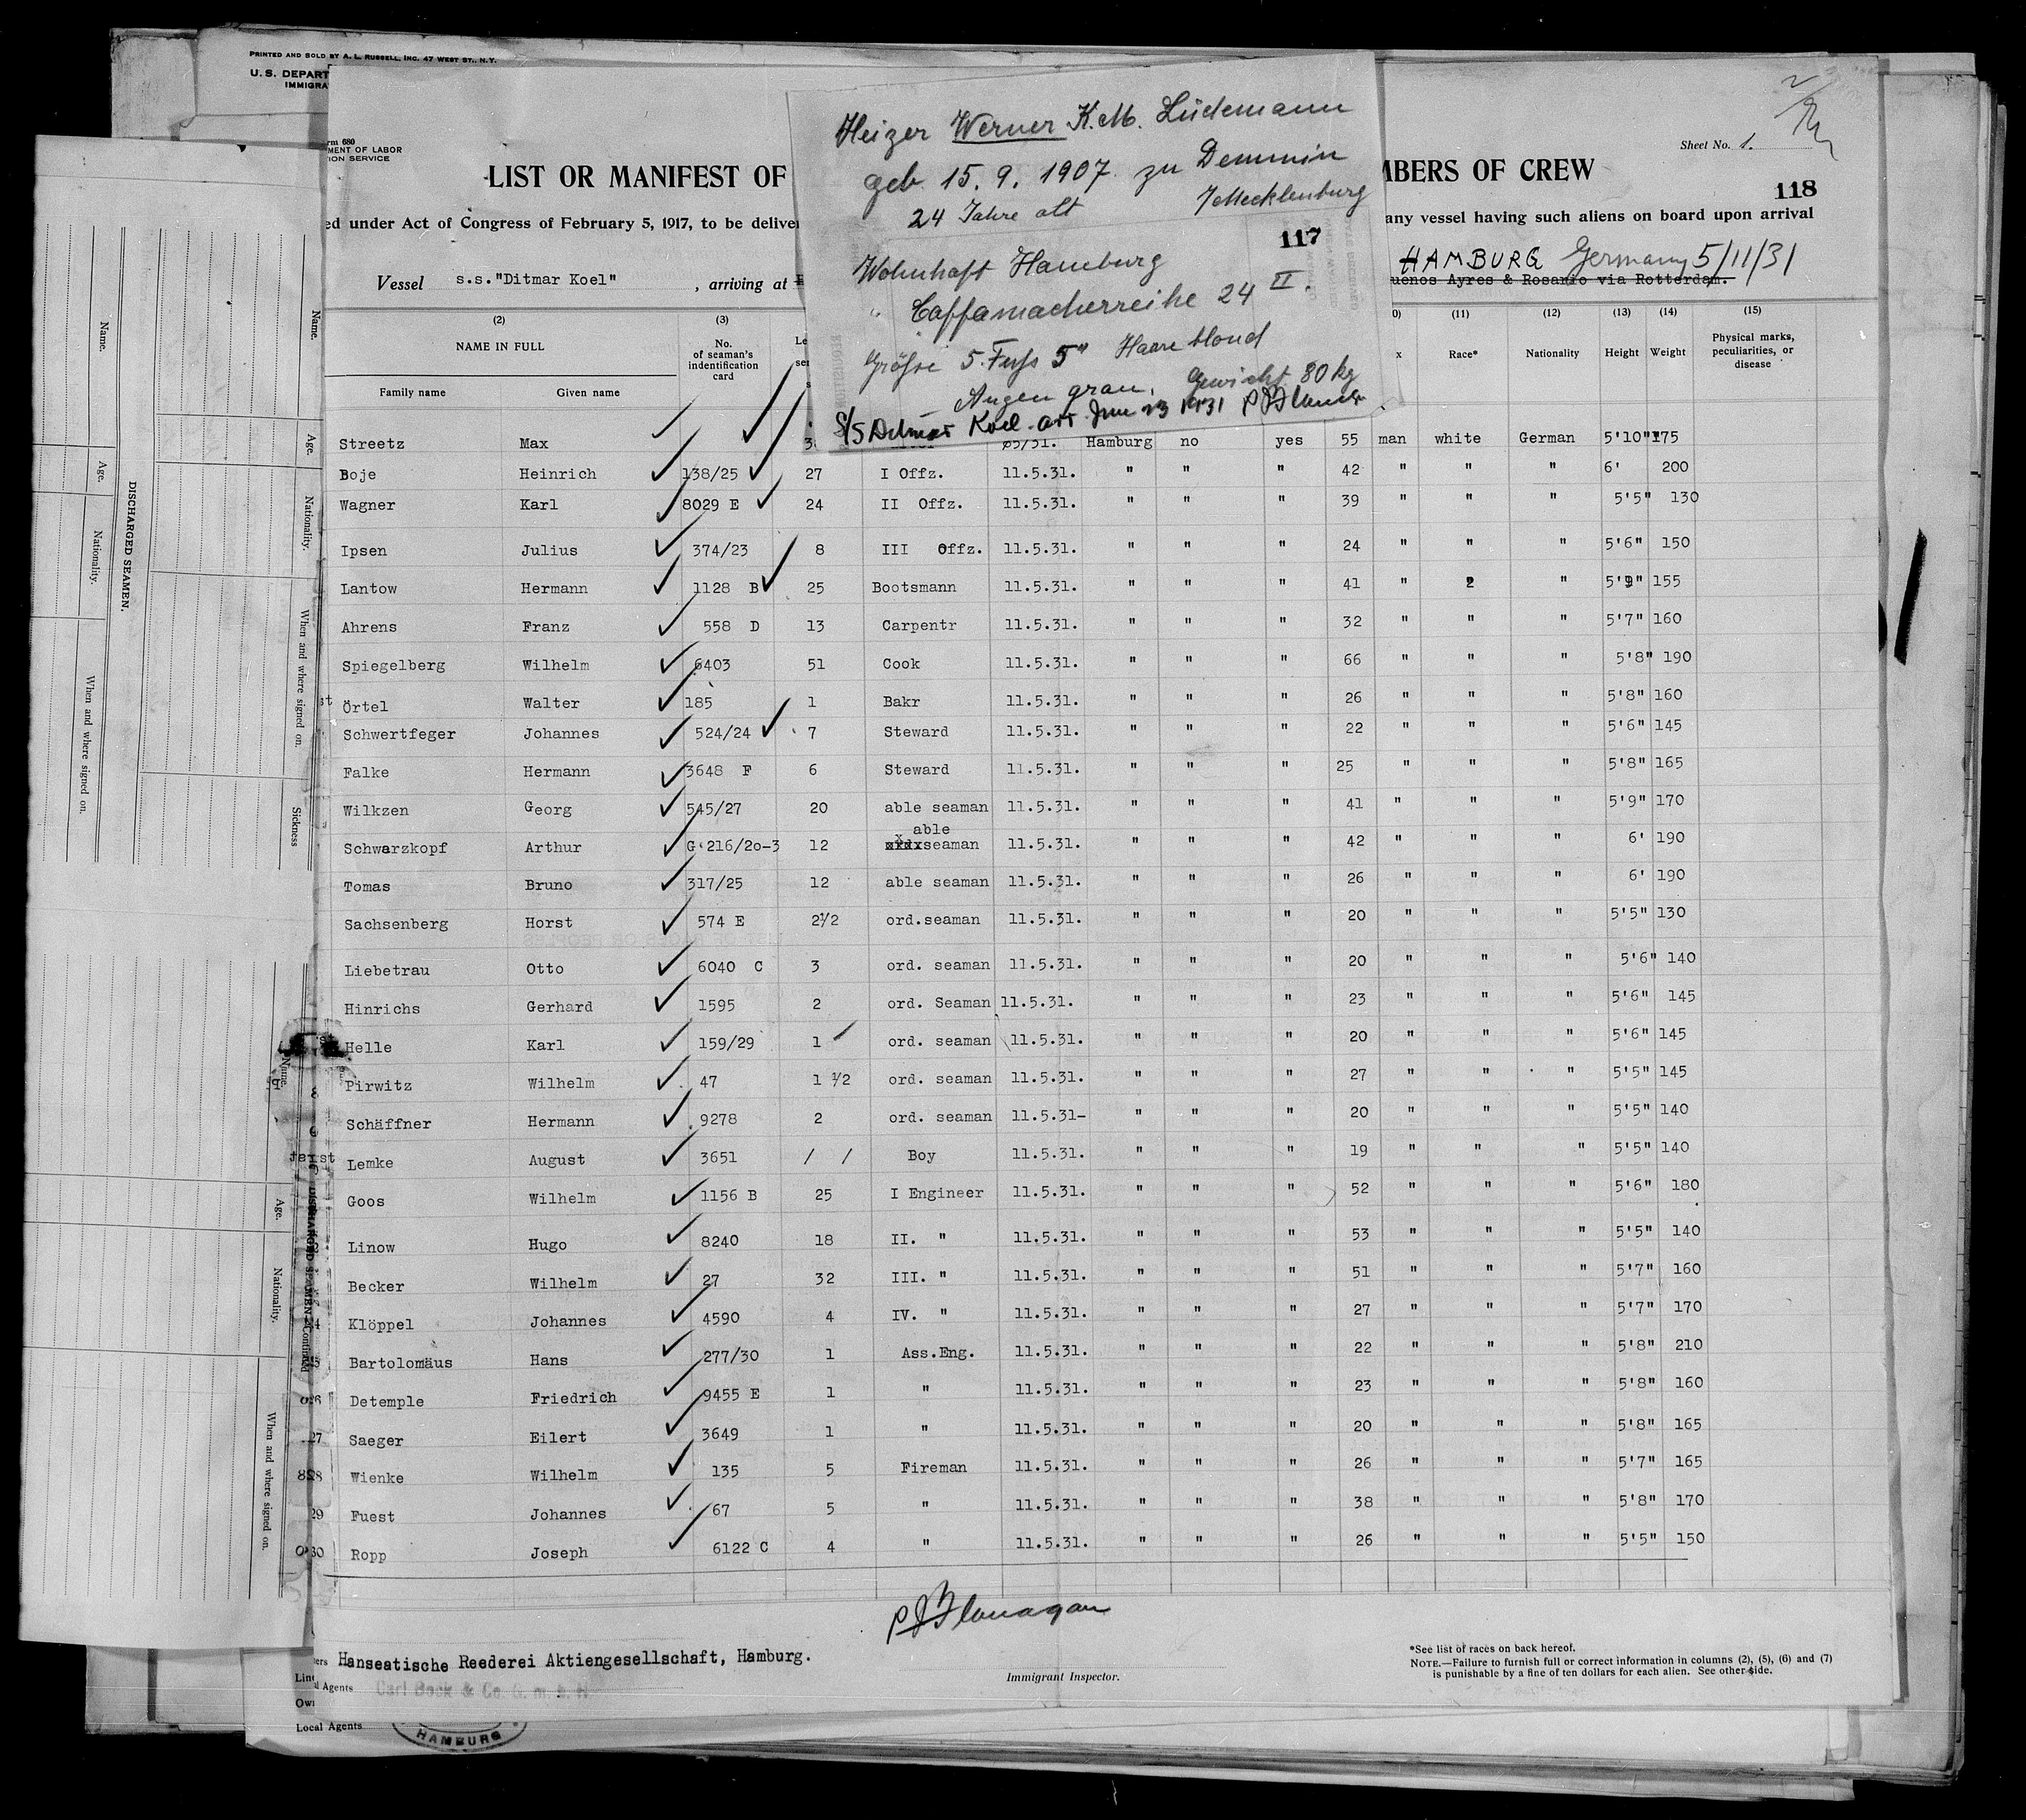 PRINTED AND SOLD BY A. L. RUSSELL, INC. 47 WEST ST., N.Y.
U. S. DEPART
IMMIGRA
rm 680
MENT OF LABOR
ION SERVICE
Sheet No. 1.
LIST OR MANIFEST OF
MBERS OF CREW
118
ed under Act of Congress of February 5, 1917, to be deliver
any vessel having such aliens on board upon arrival
Vessel s.s."Ditmar Koel" , arriving at
HAMBURG Germany 5/11/31
uenos Ayres & Rosario via Rotterdam.
Heizer Werner K. M. Lüdemann
geb. 15. 9. 1907. zu Demmin
24 Jahre alt /Mecklenburg
117
Wohnhaft Hamburg
" Caffamacherreihe 24 II.
Grösse 5. Fuss 5" Haare blond
Augen grau. Gewicht 80 kg
S/S Ditmar Koel. arr June 23 1931 P J Flanagan
(2) (3) 0) (11) (12) (13) (14) (15)
NAME IN FULL No. of seaman's indentification card Le x Race* Nationality Height Weight Physical marks, peculiarities, or disease
Family name Given name
Streetz Max 3 05/31. Hamburg no yes 55 man white German 5'10" 175
Boje Heinrich 138/25 27 I Offz. 11.5.31. " " " 42 " " " 6' 200
Wagner Karl 8029 E 24 II Offz. 11.5.31. " " " 39 " " " 5'5" 130
Ipsen Julius 374/23 8 III Offz. 11.5.31. " " " 24 " " " 5'6" 150
Lantow Hermann 1128 B 25 Bootsmann 11.5.31. " " " 41 " " " 5'9" 155
Ahrens Franz 558 D 13 Carpentr 11.5.31. " " " 32 " " " 5'7" 160
Spiegelberg Wilhelm 6403 51 Cook 11.5.31. " " " 66 " " " 5'8" 190
Örtel Walter 185 1 Bakr 11.5.31. " " " 26 " " " 5'8" 160
Schwertfeger Johannes 524/24 7 Steward 11.5.31. " " " 22 " " " 5'6" 145
Falke Hermann 3648 F 6 Steward 11.5.31. " " " 25 " " " 5'8" 165
Wilkzen Georg 545/27 20 able seaman 11.5.31. " " " 41 " " " 5'9" 170
Schwarzkopf Arthur G 216/20-3 12 able seaman 11.5.31. " " " 42 " " " 6' 190
Tomas Bruno 317/25 12 able seaman 11.5.31. " " " 26 " " " 6' 190
Sachsenberg Horst 574 E 2½ ord.seaman 11.5.31. " " " 20 " " " 5'5" 130
Liebetrau Otto 6040 C 3 ord. seaman 11.5.31. " " " 20 " " " 5'6" 140
Hinrichs Gerhard 1595 2 ord. Seaman 11.5.31. " " " 23 " " " 5'6" 145
Helle Karl 159/29 1 ord. seaman 11.5.31. " " " 20 " " " 5'6" 145
Pirwitz Wilhelm 47 1 ½ ord. seaman 11.5.31. " " " 27 " " " 5'5" 145
Schäffner Hermann 9278 2 ord. seaman 11.5.31- " " " 20 " " " 5'5" 140
Lemke August 3651 / / Boy 11.5.31. " " " 19 " " " 5'5" 140
Goos Wilhelm 1156 B 25 I Engineer 11.5.31. " " " 52 " " " 5'6" 180
Linow Hugo 8240 18 II. " 11.5.31. " " " 53 " " " 5'5" 140
Becker Wilhelm 27 32 III. " 11.5.31. " " " 51 " " " 5'7" 160
Klöppel Johannes 4590 4 IV. " 11.5.31. " " " 27 " " " 5'7" 170
Bartolomäus Hans 277/30 1 Ass.Eng. 11.5.31. " " " 22 " " " 5'8" 210
Detemple Friedrich 9455 E 1 " 11.5.31. " " " 23 " " " 5'8" 160
Saeger Eilert 3649 1 " 11.5.31. " " " 20 " " " 5'8" 165
Wienke Wilhelm 135 5 Fireman 11.5.31. " " " 26 " " " 5'7" 165
Fuest Johannes 67 5 " 11.5.31. " " " 38 " " " 5'8" 170
Ropp Joseph 6122 C 4 " 11.5.31. " " " 26 " " " 5'5" 150
P J Flanagan
Immigrant Inspector.
Hanseatische Reederei Aktiengesellschaft, Hamburg.
Agents Carl Bock & Co. G. m. b. H.
Local Agents
HAMBURG
*See list of races on back hereof.
NOTE.—Failure to furnish full or correct information in columns (2), (5), (6) and (7)
is punishable by a fine of ten dollars for each alien. See other side.
DISCHARGED SEAMEN.
Name. Age. Nationality. When and where signed on.
Name. Age. Nationality. When and where signed on. Sickness
DISCHARGED SEAMEN—Continued
Name. Age. Nationality. When and where signed on.